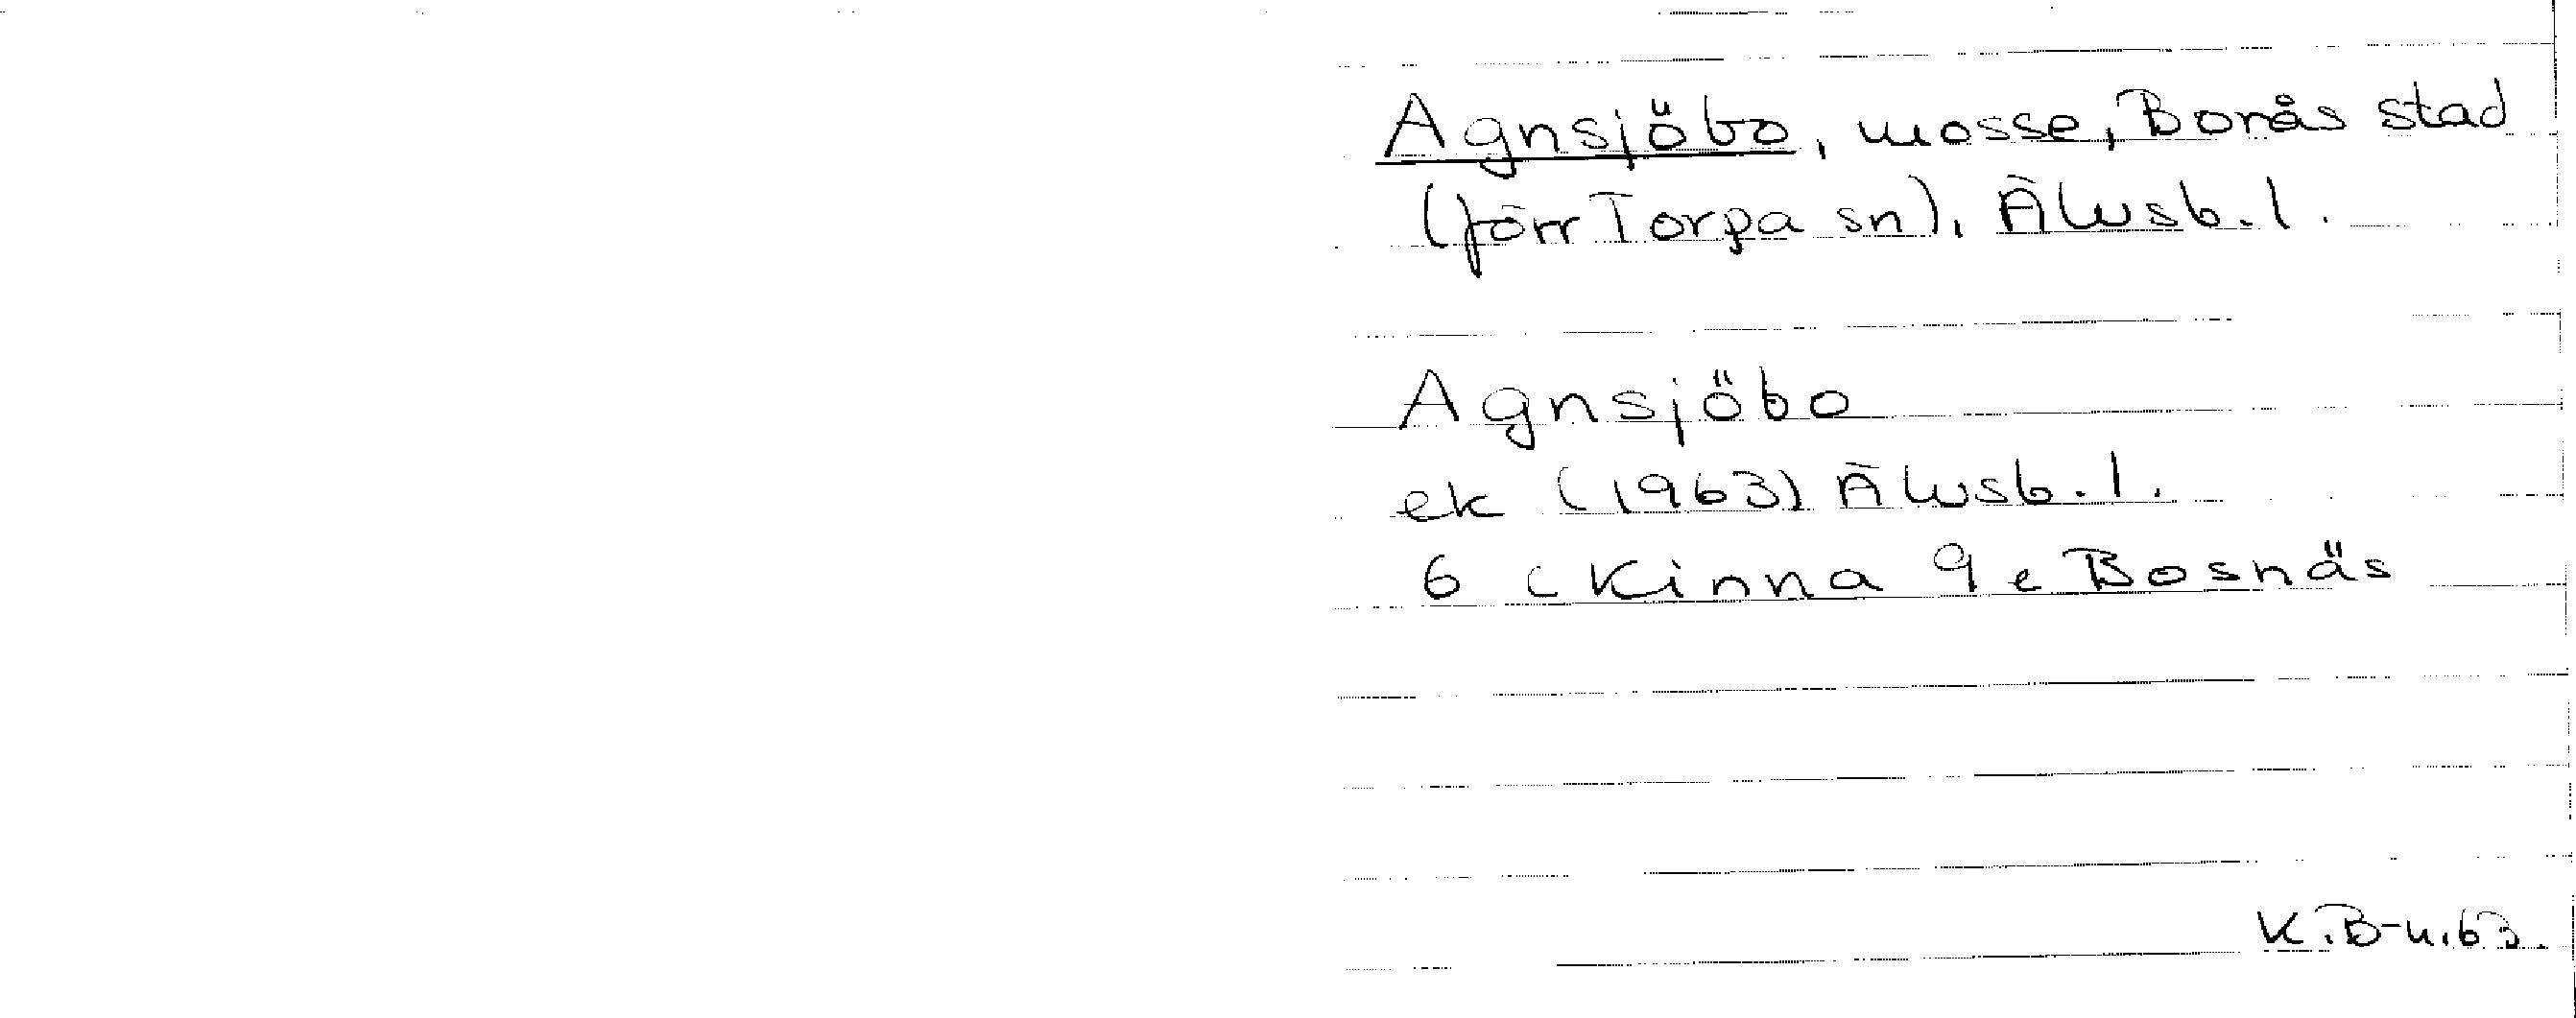 Agnsjöbo, mosse, Borås stad
(förr Torpa sn), Älvsb. l.
Agnsjöbo
ek (1963) Älvsb. l.
6 c Kinna 9 e Bosnäs
K.B-n.63.